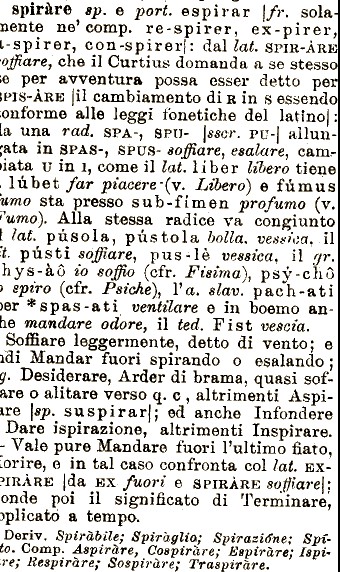 spiràre sp. e port. espirar |fr. sola-
mente ne' comp. re-spirer, ex-pirer,
-spirer, con-spirer|: dal lat. SPIR-ÀRE
soffiare, che il Curtius domanda a se stesso
se per avventura possa esser detto per
SPIS-ÀRE |il cambiamento di R in S essendo
conforme alle leggi fonetiche del latino|:
da una rad. SPA-, SPU- |sscr. PU-| allun-
gata in SPAS-, SPUS- soffiare, esalare, cam-
biata U in I, come il lat. liber libero tiene
lúbet far piacere (v. Libero) e fúmus
fumo sta presso sub-fimen profumo (v.
Fumo). Alla stessa radice va congiunto
il lat. púsola, pústola bolla, vessica, il
lit. pústi soffiare, pus-lè vessica, il gr.
phys-àô io soffio (cfr. Fisima), psý-chô
io spiro (cfr. Psiche), l'a. slav. pach-ati
per *spas-ati ventilare e in boemo an-
che mandare odore, il ted. Fist vescia.
Soffiare leggermente, detto di vento; e
indi Mandar fuori spirando o esalando;
fig. Desiderare, Arder di brama, quasi sof-
fiare o alitare verso q. c, altrimenti Aspi-
rare |sp. suspirar|; ed anche Infondere
Dare ispirazione, altrimenti Inspirare.
— Vale pure Mandare fuori l'ultimo fiato,
Morire, e in tal caso confronta col lat. EX-
PIRÀRE |da EX fuori e SPIRÀRE soffiare|;
onde poi il significato di Terminare,
applicato a tempo.
Deriv. Spiràbile; Spiràglio; Spirazióne; Spí-
to. Comp. Aspiràre, Cospiràre; Espiràre; Ispi-
ràre; Respiràre; Sospiràre; Traspiràre.